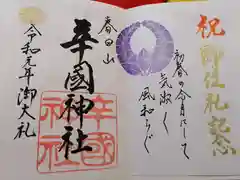 祝
御即位礼記念
初春の令月にして
気淑く
風和らぐ
春日山
辛國神社
辛國
神社
令和元年御大礼